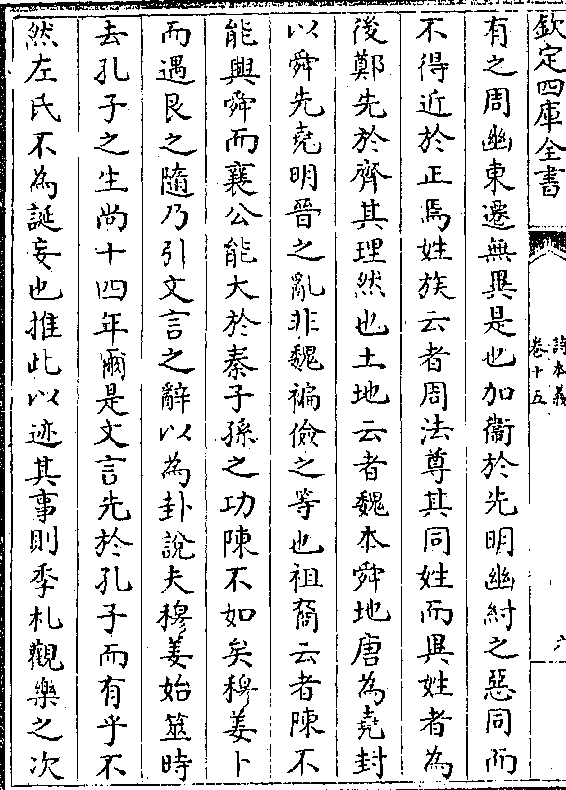 欽定四庫全書
詩本義
卷十五
六
有之周幽東遷無異是也加衞於先明幽紂之惡同而
不得近於正焉姓族云者周法尊其同姓而異姓者為
後鄭先於齊其理然也土地云者魏本舜地唐為堯封
以舜先堯明晉之亂非魏褊儉之等也祖裔云者陳不
能興舜而襄公能大於秦子孫之功陳不如矣穆姜卜
而遇艮之隨乃引文言之辭以為卦說夫穆姜始筮時
去孔子之生尚十四年爾是文言先於孔子而有乎不
然左氏不為誕妄也推此以迹其事則季札觀樂之次